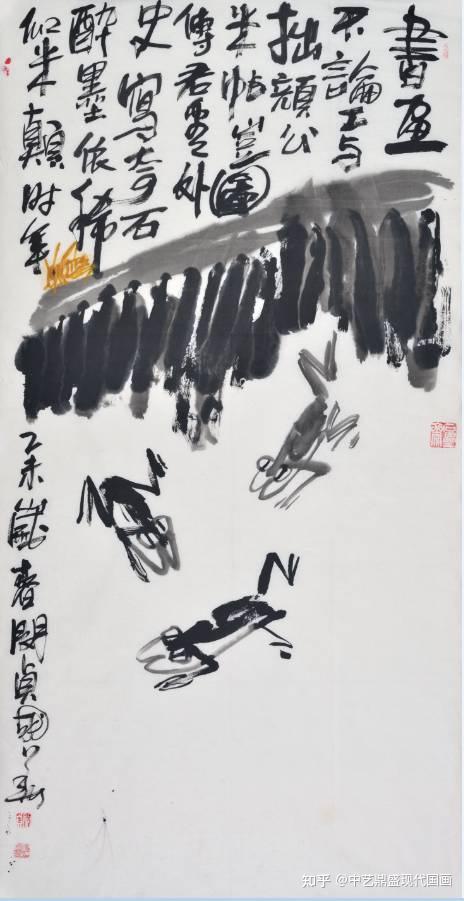 書画
不論工与
拙顏公
米帖豈圖
傳君看外
史寫奇石
醉墨依稀
似米顛时年
乙未歲春
知乎 @中艺鼎盛现代国画